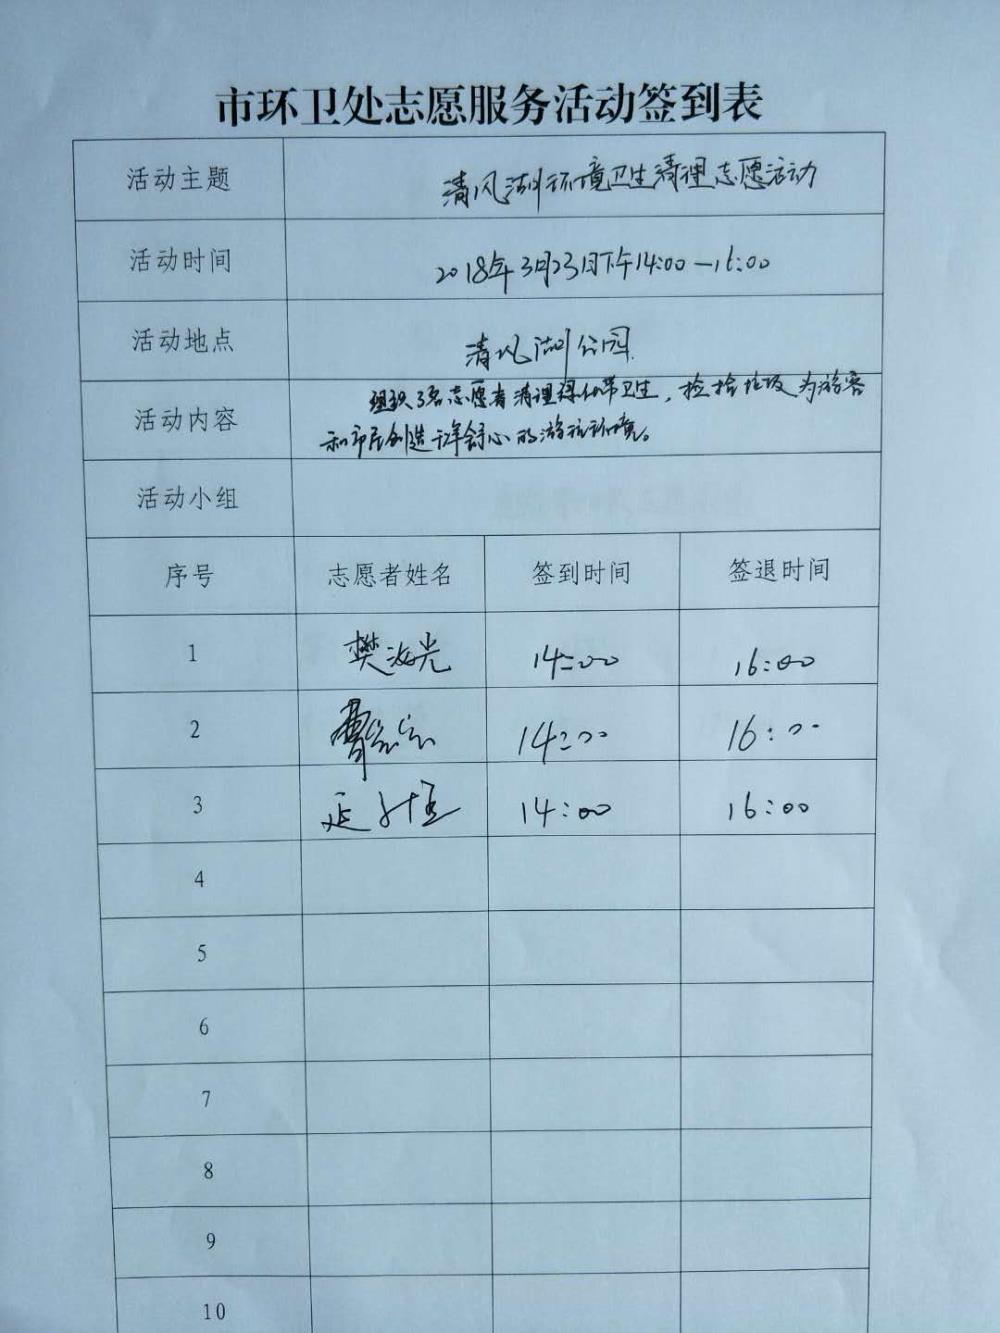 市环卫处志愿服务活动签到表
活动主题 清风湖环境卫生清理志愿活动
活动时间 2018年3月23日下午14:00—16:00
活动地点 清风湖公园
活动内容 组织3名志愿者清理绿化带卫生，捡拾垃圾为游客
和市民创造干净舒心的游玩环境。
活动小组
序号 志愿者姓名 签到时间 签退时间
1 樊汝光 14:00 16:00
2 14:00 16:00
3 14:00 16:00
4
5
6
7
8
9
10